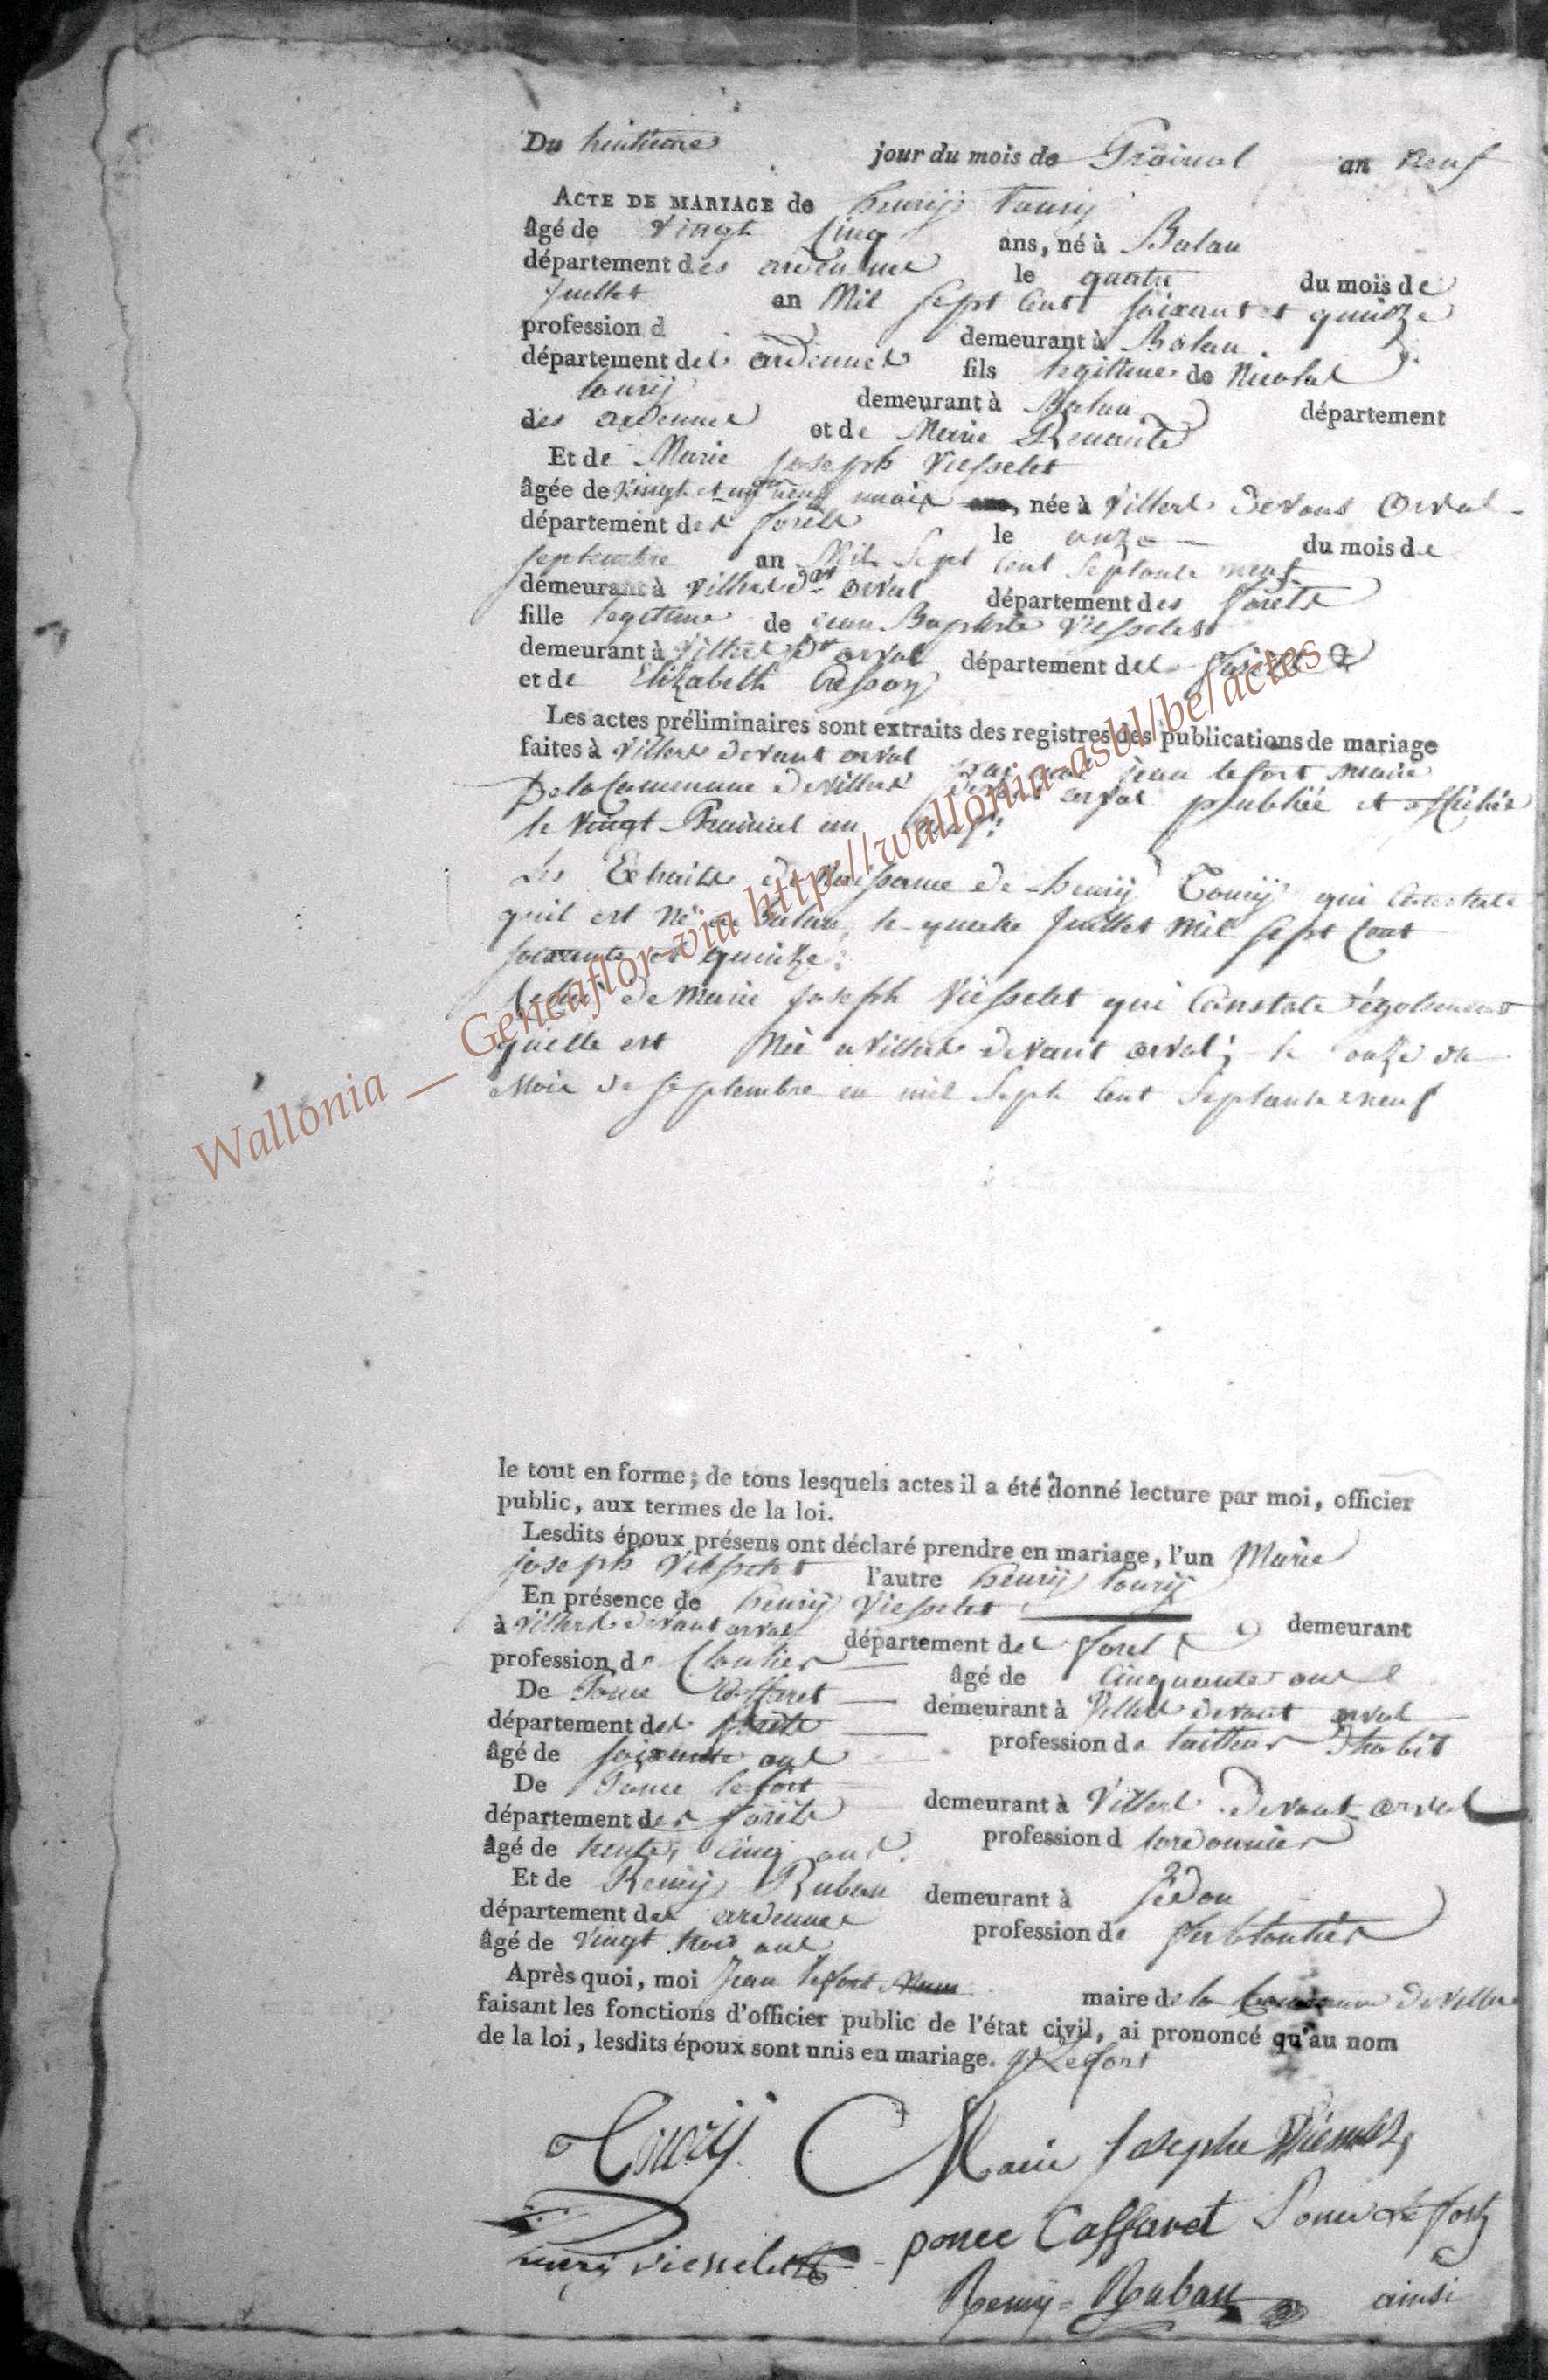 Du huitieme jour du mois de Prairial an neuf
ACTE DE MARIAGE de henrij Tourij
âgé de Vingt Cinq ans, né à Balan
département des ardennes le quatre du mois de
Juillet an Mil Sept Cent Soixant et quinze
profession d demeurant à Balan
département des ardennes fils legitime de Nicolas
tourij demeurant à Balan département
des ardennes et de Marie
Et de Marie Joseph Viesselet
âgée de vingt et un neuf mois ans, née à Villers devant Orval
département des forêts le onze du mois de
septembre an Mil Sept Cent Septante neuf
demeurant à Villers dvt orval département des forêts
fille legitime de jean Baptiste Viesselet
demeurant à Villers dvt orval département des forêts
et de Elizabeth
Les actes préliminaires sont extraits des registres des publications de mariage
faites à Villers devant orval par moi jean lefort maire
De la Commune de Villers devant orval publiée et affichée
le vingt Prairial an neuf
Les Extraits de Naissance de henrij Tourij qui Constate
quil est né a Balan, le quatre Juillet Mil Sept Cent
soixante et quinze
Celui de Marie Joseph Viesselet qui Constate égolement
quelle est Née a Villers devant orval; le onze du
Mois de Septembre en mil Sept Cent Septante neuf
le tout en forme; de tous lesquels actes il a été donné lecture par moi, officier
public, aux termes de la loi.
Lesdits époux présens ont déclaré prendre en mariage, l'un Marie
joseph Viesselet l'autre henrij tourij
En présence de henrij Viesselet demeurant
à Villers devant orval département des foret
profession de Cloutier âgé de Cinquante ans
De Ponce Caffaret demeurant à Villers devant orval
département des forêts profession de tailleur d'habit
âgé de soixante ans
De Ponce lefort demeurant à Villers devant orval
département des forêts profession d Cordonnier
âgé de trente cinq ans.
Et de Remij Ruban demeurant à Sédan
département des ardennes profession de ferblantier
âgé de Vingt trois ans
Après quoi, moi Jean lefort maire de la Commune de Villers
faisant les fonctions d'officier public de l'état civil, ai prononcé qu'au nom
de la loi, lesdits époux sont unis en mariage. Lefort
Tourij Marie Josephe Viesselet
henri viesselet ponce Caffaret Ponce Lefort
Remij Ruban ainsi
Wallonia _ Geneaflor-via http://wallonia-asbl/be/actes